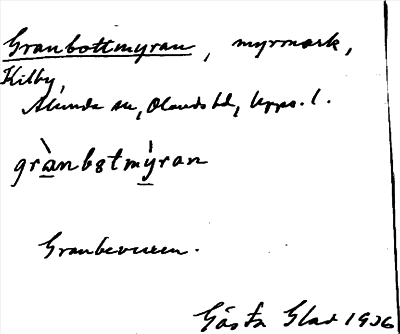 Granbottmyran, myrmark,
Kilby,
Alunda sn, Olands hd, Upps. l.
grànbotmýran
Granbevuxen.
Gösta Glad 1936